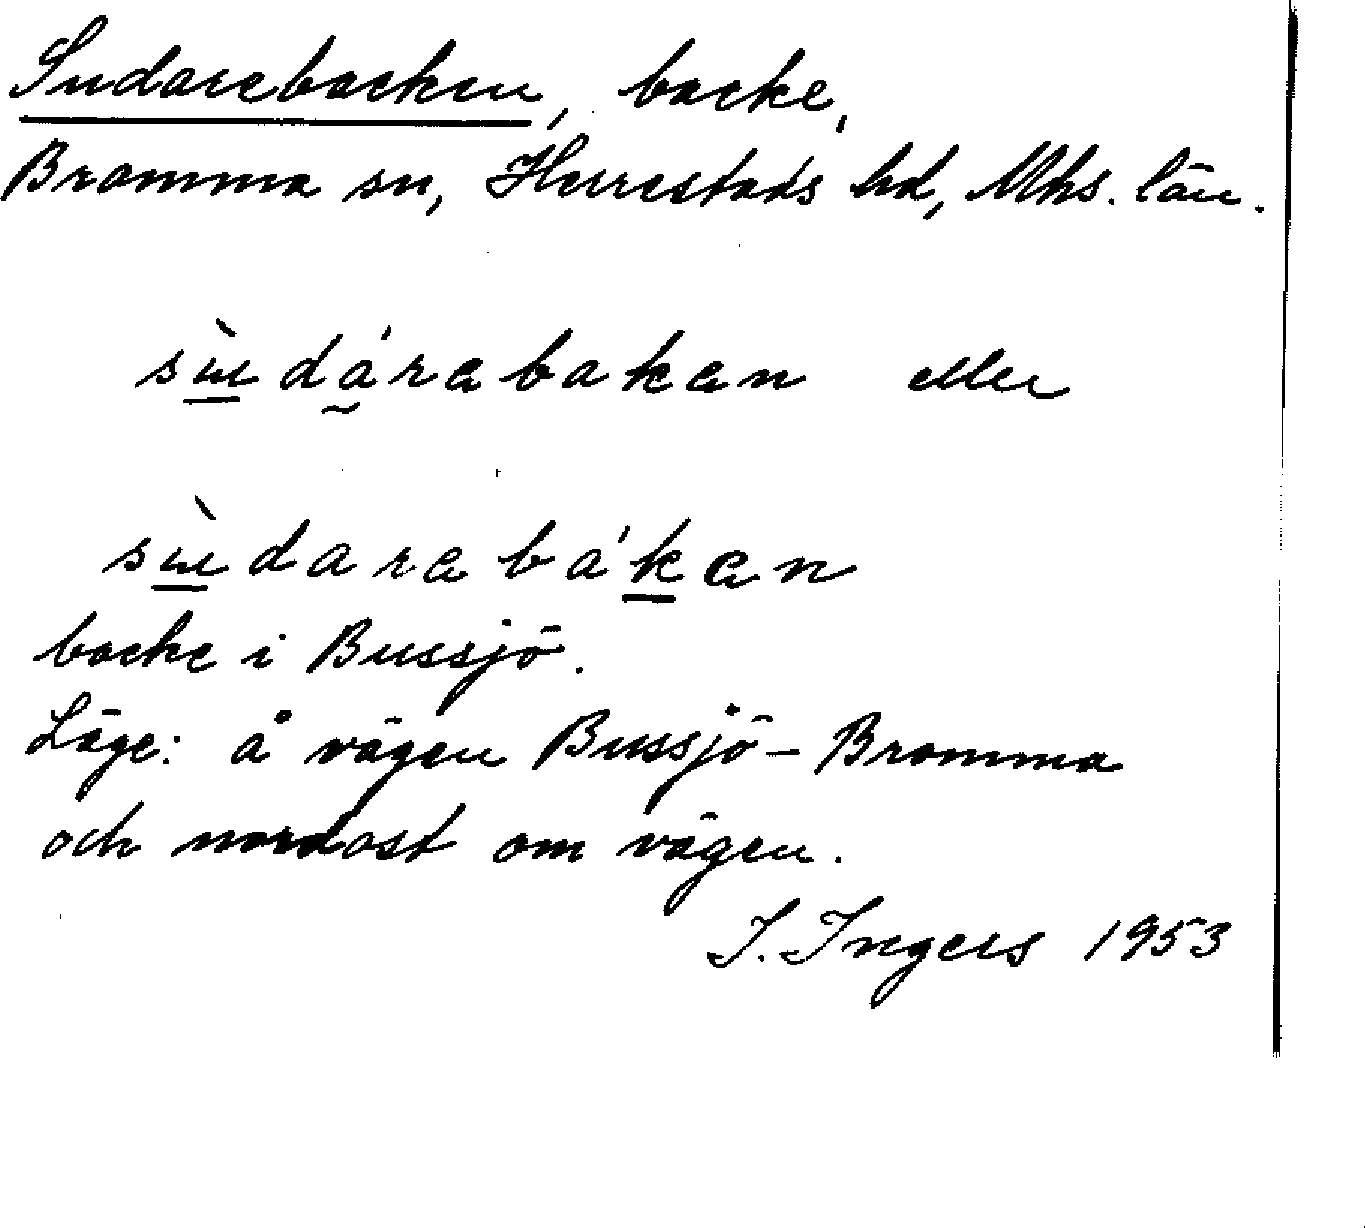 Sudarebacken, backe,
Bromma sn, Herrestads hd, Mhs. län.
sɯ̀dárabakan eller
sɯ̀darabákan
backe i Bussjö.
Läge: å vägen Bussjö - Bromma
och nordost om vägen.
I. Ingers 1953